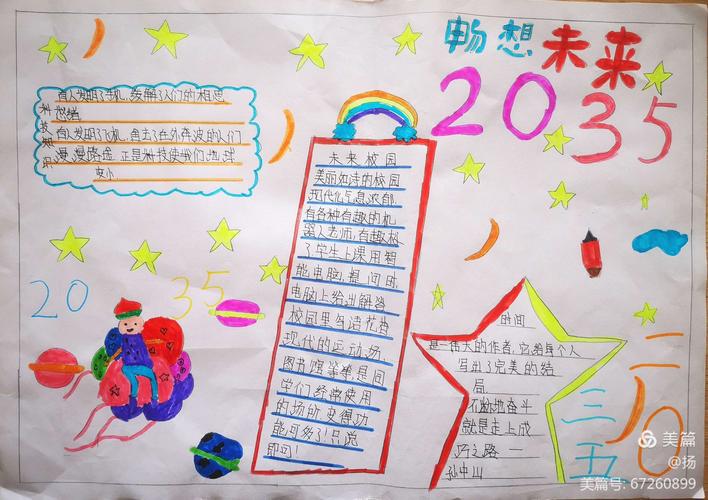 畅想未来
2035
有人发明了手机,缓解了人们的相思
愁绪
有人发明了飞机,免去了在外奔波的人们
漫漫路途 正是科技使我们地球
变小
科技知识
未来校园
美丽如诗的校园
现代化气息浓郁,
有各种有趣的机
器人老师,有趣极
了学生上课用智
能电脑,提问时,
电脑上给出解答
校园里鸟语花香
现代的运动场,
图书馆等等是同
学们经常使用
的场所变得功
能可多了!只说
即可!
20 35
时间
是一伟大的作者,它给每个人
写出了完美的结
局
不断地奋斗
就是走上成
巧之路一
孙中山
二0
三五
美篇
@扬
美篇号: 67260899